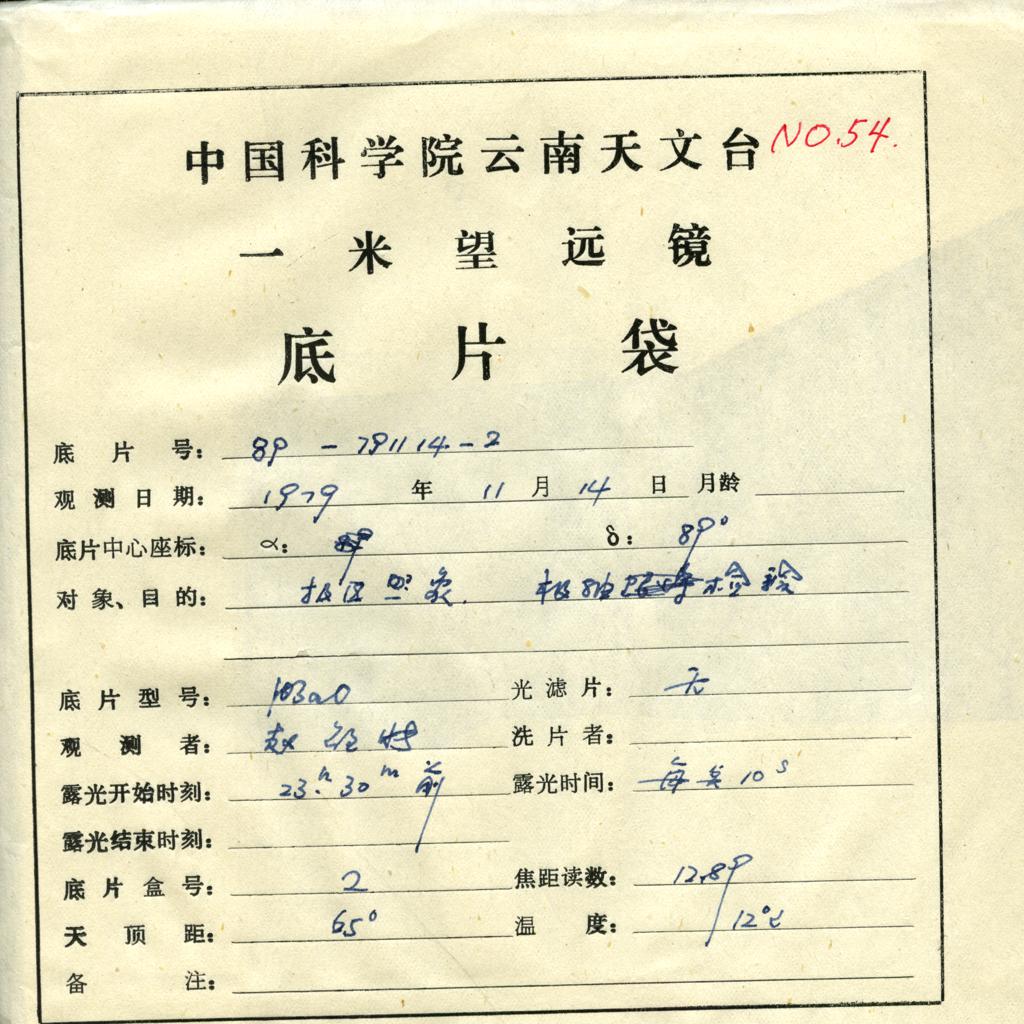 中国科学院云南天文台 NO.54.
一米望远镜
底片袋
底片号: 89-791114-2
观测日期: 1979年11月14日 月龄
底片中心座标: α: δ: 89°
对象、目的: 极区照象. 极轴检验
底片型号: 103aO 光滤片: 无
观测者: 洗片者:
露光开始时刻: 23h30m前 露光时间: 每 10s
露光结束时刻:
底片盒号: 2 焦距读数: 12.89
天顶距: 65° 温度: 12℃
备注: